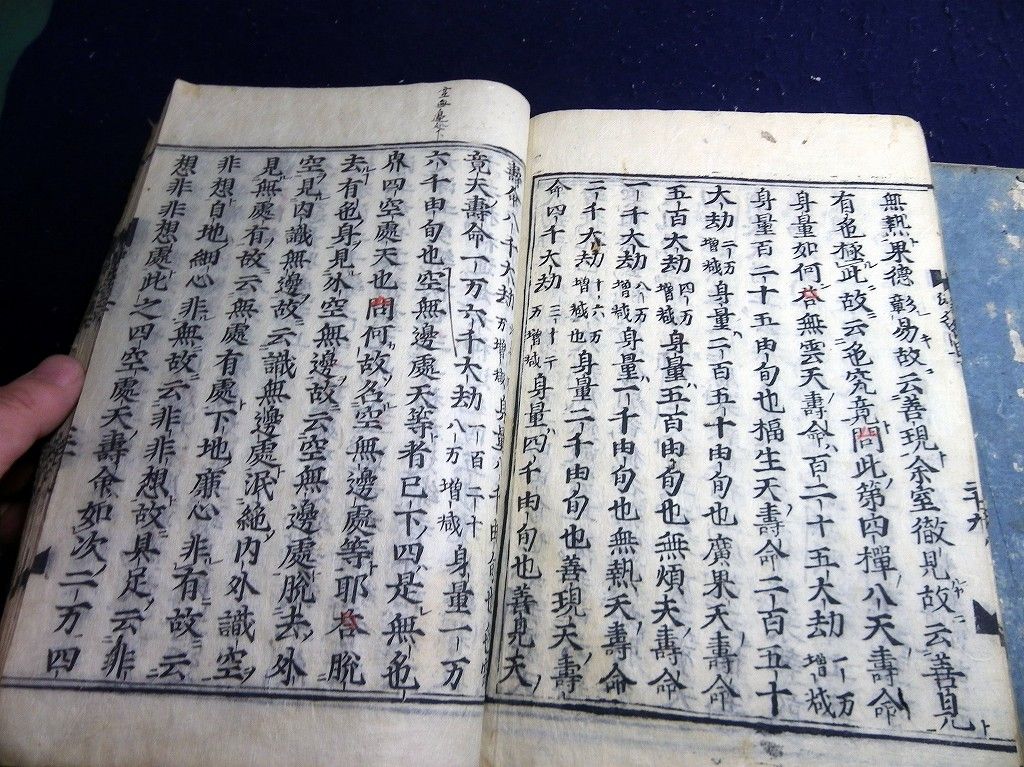 無熱果德彰易故云善現余室徹見故云善見
有色極此故云色究竟問此第四禪八天壽命
身量如何答無雲天壽命百二十五大劫一万増减
身量百二十五由旬也福生天壽命二百五十
大劫二万増减身量二百五十由旬也廣果天壽命
五百大劫四万増减身量五百由旬也無煩天壽命
一千大劫八万増减身量一千由旬也無熱天壽命
二千大劫十六万増减也身量二千由旬也善現天壽
命四千大劫三十二万増减身量四千由旬也善見天
壽命八千大劫
竟天壽命一万六千大劫一百二十八万増减身量一万
六千由旬也空無邊處天等者已下四是無色
界四空處天也問何故名空無邊處等耶答脫
去有色身見外空無邊故云空無邊處脫去外
空見内識無邊故云識無邊處泯絶内外識空
見無處有故云無處有處下地麁心非有故云
非想自地細心非無故云非非想故具足云非
想非非想處此之四空處天壽命如次二万四
三十九